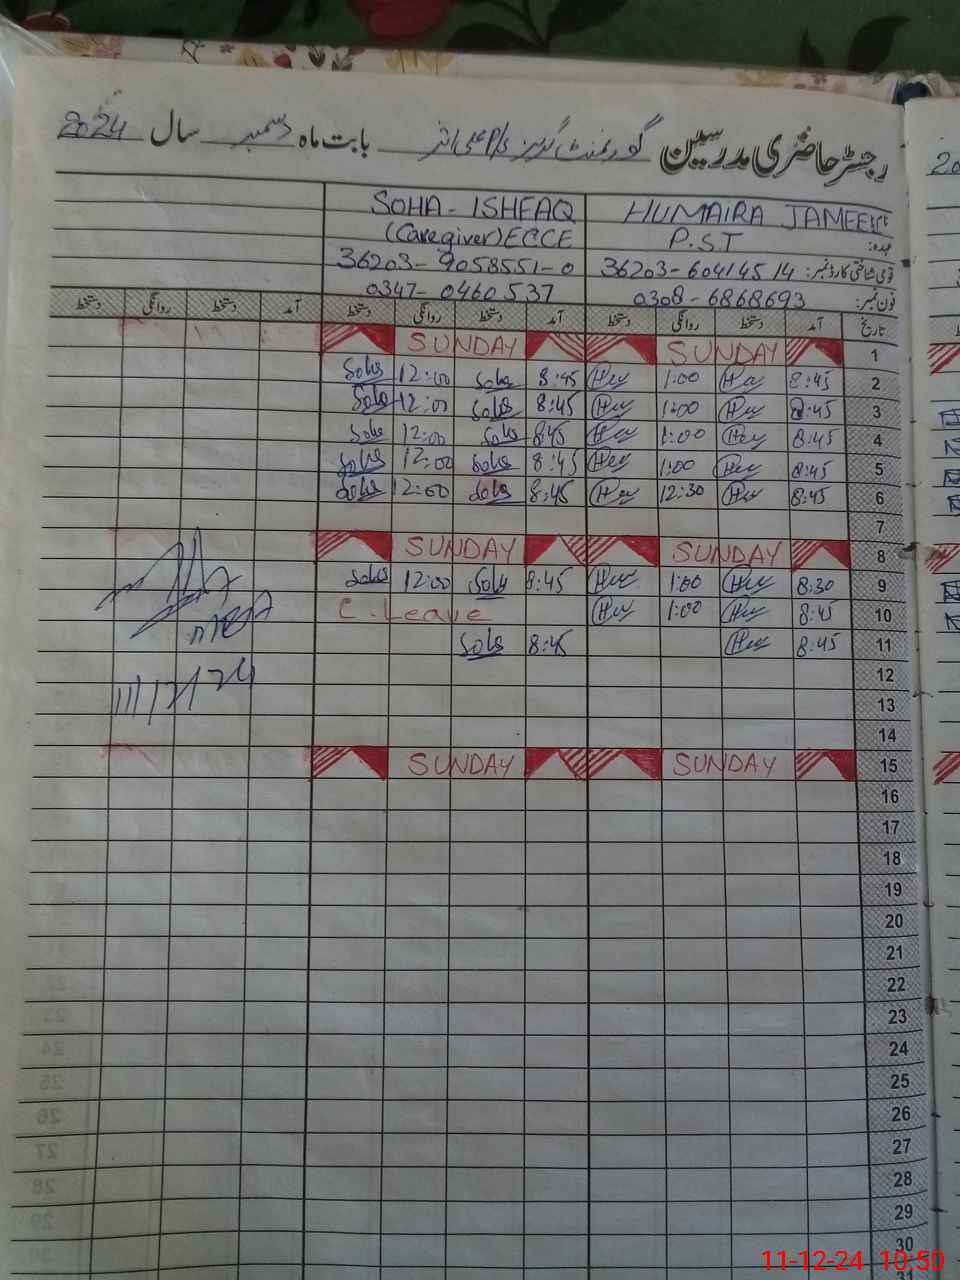 رجسٹر حاضری مدرسین گورنمنٹ گرلز P/S بابت ماہ دسمبر سال 2024
HUMAIRA JAMEEL SOHA - ISHFAQ
عہدہ: P.S.T (Caregiver) ECCE
قومی شناختی کارڈ نمبر: 36203-6041451 4 36203-9058551-0
فون نمبر: 0308-6868693 0347-0460537
تاریخ آمد دستخط روانگی دستخط آمد دستخط روانگی دستخط آمد دستخط روانگی دستخط
1 SUNDAY SUNDAY
2 8:45 1:00 8:45 Soha 12:00 Soha
3 8:45 1:00 8:45 Soha 12:00 Soha
4 8:45 1:00 8:45 Soha 12:00 Soha
5 8:45 1:00 8:45 Soha 12:00 Soha
6 8:45 12:30 8:45 Soha 12:00 Soha
7
8 SUNDAY SUNDAY
9 8:30 1:00 8:45 Soha 12:00 Soha
10 8:45 1:00 C. Leave
11 8:45 8:45 Soha
11/12/24
12
13
14
15 SUNDAY SUNDAY
16
17
18
19
20
21
22
23
24
25
26
27
28
29
30
11-12-24 10:50